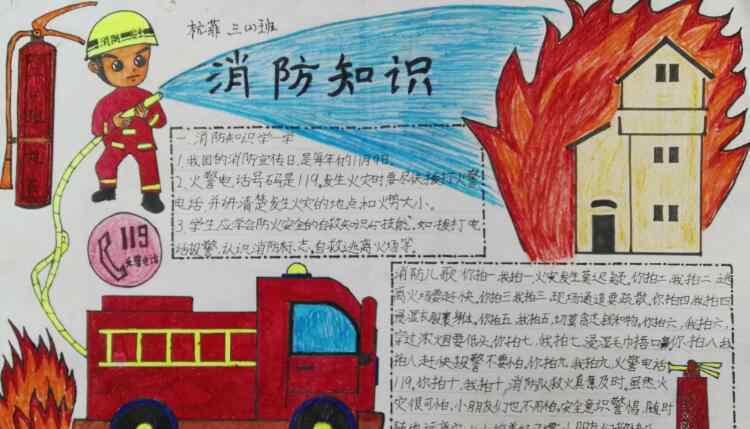 杭菲 三(1)班
消防知识
消防
119
火警电话
一.消防知识学一学
1.我国的消防宣传日是每年的11月9日。
2.火警电话号码是119,发生火灾时要尽快拨打火警
电话,并讲清楚发生火灾的地点和火势大小。
3.学生应学会防火安全的自救知识和技能,如:拨打电
话报警,认识消防标志,自救逃离火场等。
消防儿歌 你拍一我拍一火灾发生莫迟疑。你拍二我拍二逃
离火场要赶快。你拍三我拍三现场通道要疏散,你拍四我拍四
湿衣服裹身。你拍五,我拍五,切莫贪恋钱和物。你拍六,我拍六,
穿过浓烟要低头。你拍七,我拍七,浸湿毛巾捂口鼻,你拍八我
拍八赶快报警不要怕。你拍九我拍九,火警电话
119。你拍十,我拍十,消防队救火真及时。虽然火
灾很可怕,小朋友们也不用怕,安全意识警惕,随时